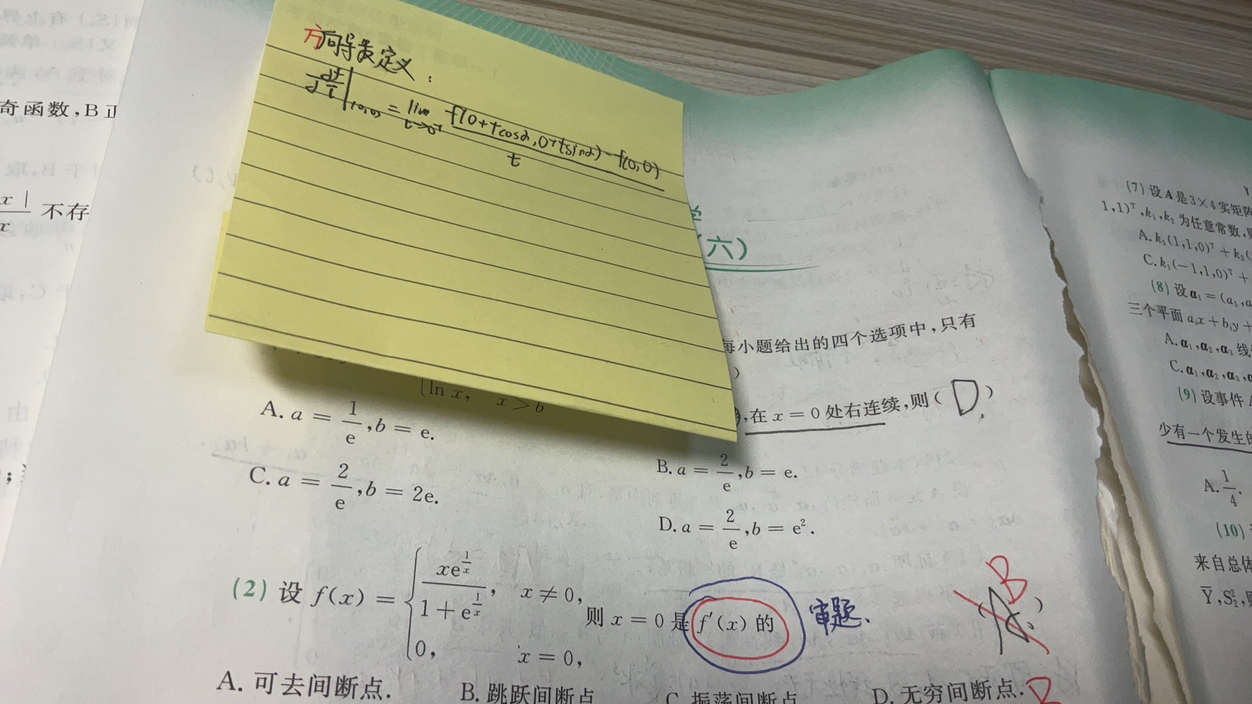 奇函数,B正
x |
x
不存
方向导数定义:
∂f/∂l|(0,0) = lim t→0⁺ f(0+tcosα,0+tsinα)-f(0,0) / t
(六)
每小题给出的四个选项中,只有
)
(ln x, x>b
,在 x = 0 处右连续,则( D )
A. a = 1/e, b = e.
B. a = 2/e, b = e.
C. a = 2/e, b = 2e.
D. a = 2/e, b = e².
(2) 设 f(x) = { xe^{1/x} / 1+e^{1/x}, x ≠ 0,
0, x = 0,
则 x = 0 是 f′(x) 的
审题.
A. B )
A. 可去间断点.
B. 跳跃间断点
C. 振荡间断点
D. 无穷间断点.
(7) 设 A 是 3×4 实矩阵
1,1)ᵀ,k₁,k₂ 为任意常数,
A. k₁(1,1,0)ᵀ + k₂(
C. k₁(−1,1,0)ᵀ +
(8) 设 α₁ = (a₁,a
三个平面 a₁x + b₁y +
A. α₁,α₂,α₃ 线
C. α₁,α₂,α₃,
(9) 设事件
少有一个发生的
A. 1/4.
(10)
来自总体
Ȳ,S₂²,